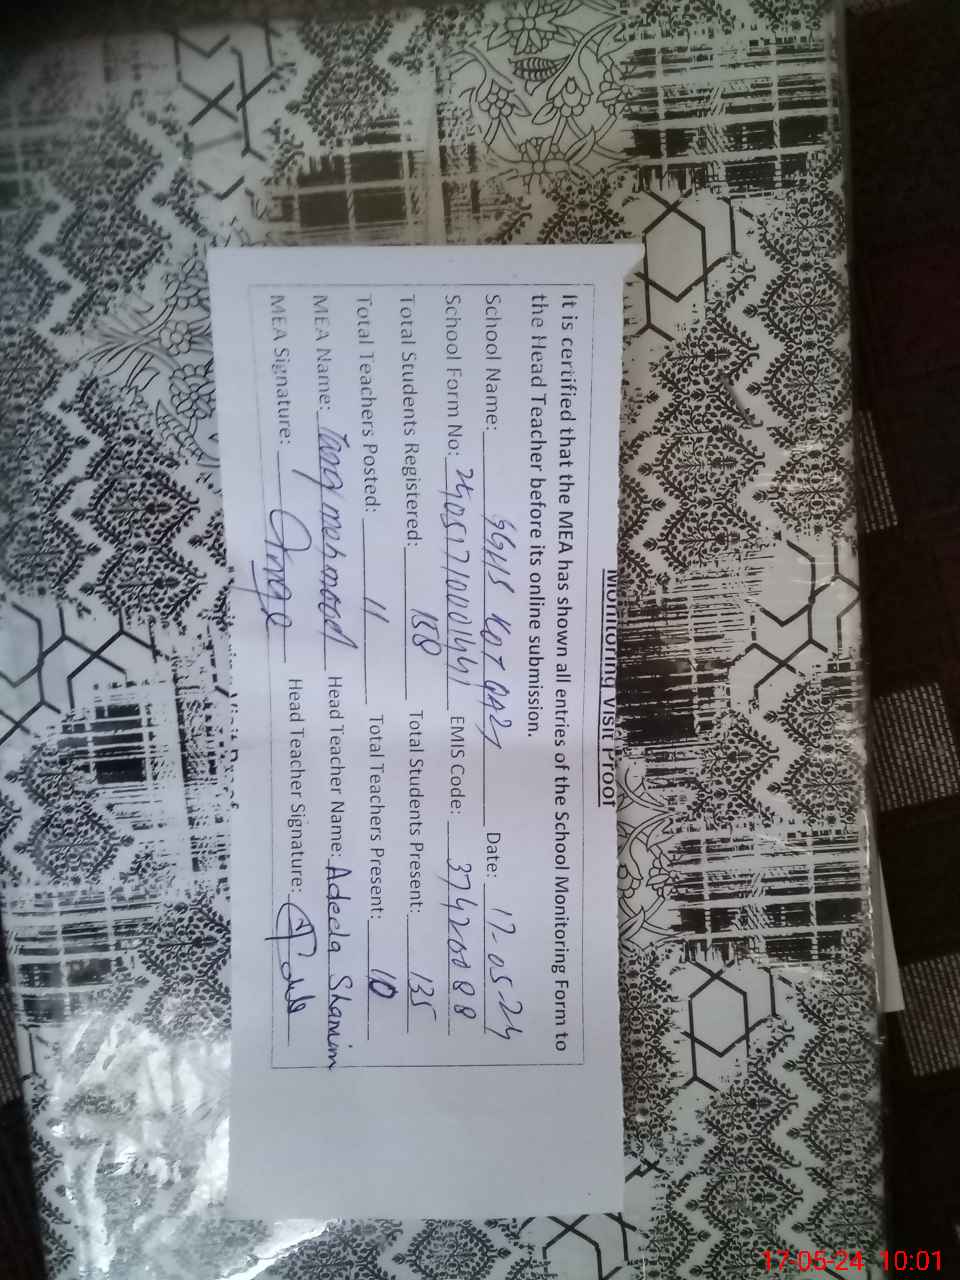 Monitoring Visit Proof
It is certified that the MEA has shown all entries of the School Monitoring Form to
the Head Teacher before its online submission.
School Name: GGHS KOT QAZI Date: 17-05-24
School Form No: EMIS Code: 37420088
Total Students Registered: 158 Total Students Present: 135
Total Teachers Posted: 11 Total Teachers Present: 10
MEA Name: Tariq mehmood Head Teacher Name: Adeela Shamim
MEA Signature: Head Teacher Signature:
17-05-24 10:01